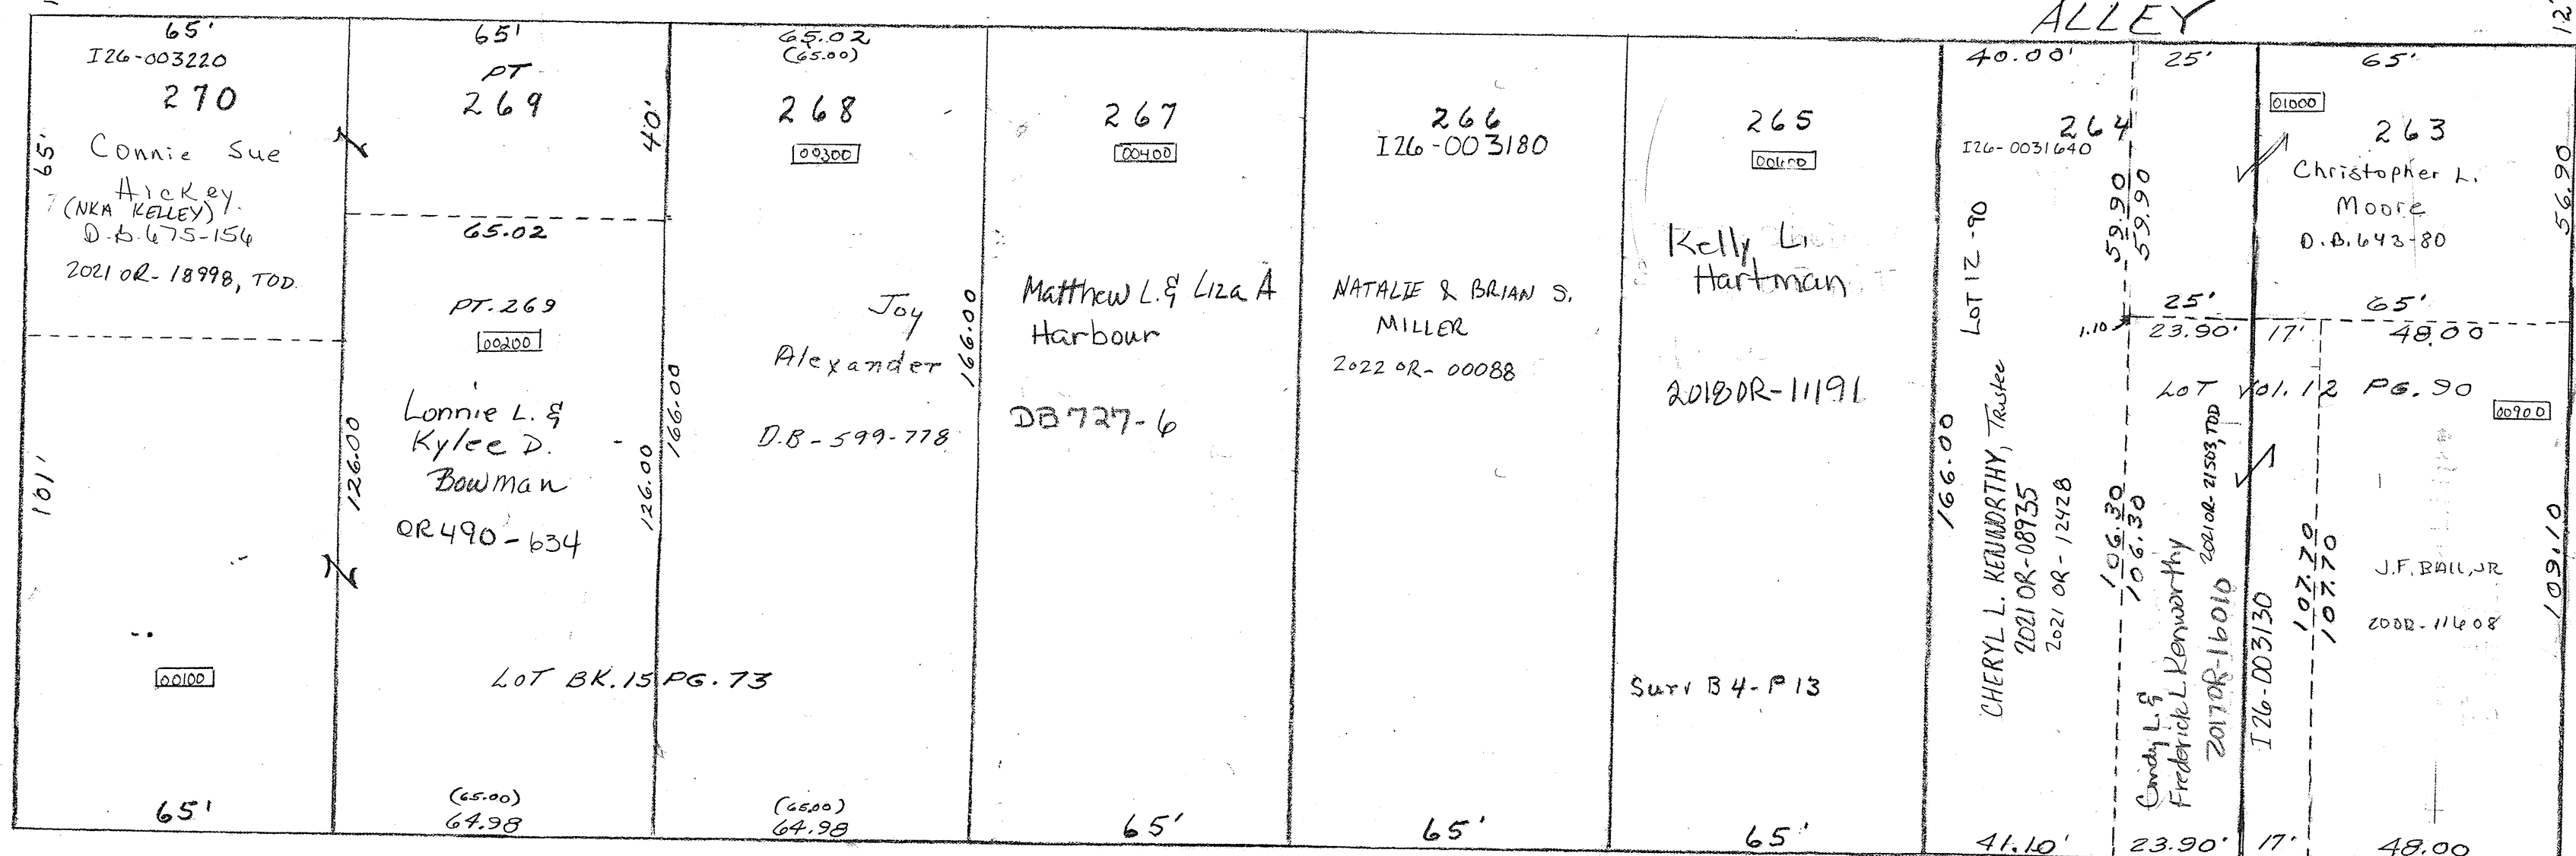 ALLEY
12'
65'
I26-003220
270
65'
Connie Sue
Hickey
(NKA KELLEY)
D.B. 675-156
2021 OR-18998, TOD.
101'
00100
65'
65'
PT
269
40'
65.02
PT. 269
00200
126.00
Lonnie L. &
Kylee D.
Bowman
OR 490-634
126.00
LOT BK. 15 PG. 73
(65.00)
64.98
65.02
(65.00)
268
00300
Joy
Alexander
166.00
166.00
D.B-599-778
(65.00)
64.98
267
00400
Matthew L. & Liza A
Harbour
DB 727-6
65'
266
I26-003180
NATALIE & BRIAN S.
MILLER
2022 OR-00088
65'
265
Kelly L.
Hartman
2018 OR-11191
Surv B4-P13
65'
40.00'
264
I26-0031640
LOT 12-90
59.90
59.90
1.10
166.00
CHERYL L. KENWORTHY, Trustee
2021 OR-08935
2021 OR-12428
106.30
106.30
41.10'
25'
25'
23.90'
LOT Vol. 12 PG. 90
2021 OR-21503, TOD
Cindy L. &
Frederick L. Kenworthy
2017 OR-16010
23.90'
65'
01000
263
Christopher L.
Moore
D.B. 643-80
56.90
65'
17'
48.00
00900
I26-003130
107.20
107.70
J.F. BALL, JR
20 OR-11608
109.10
17'
48.00